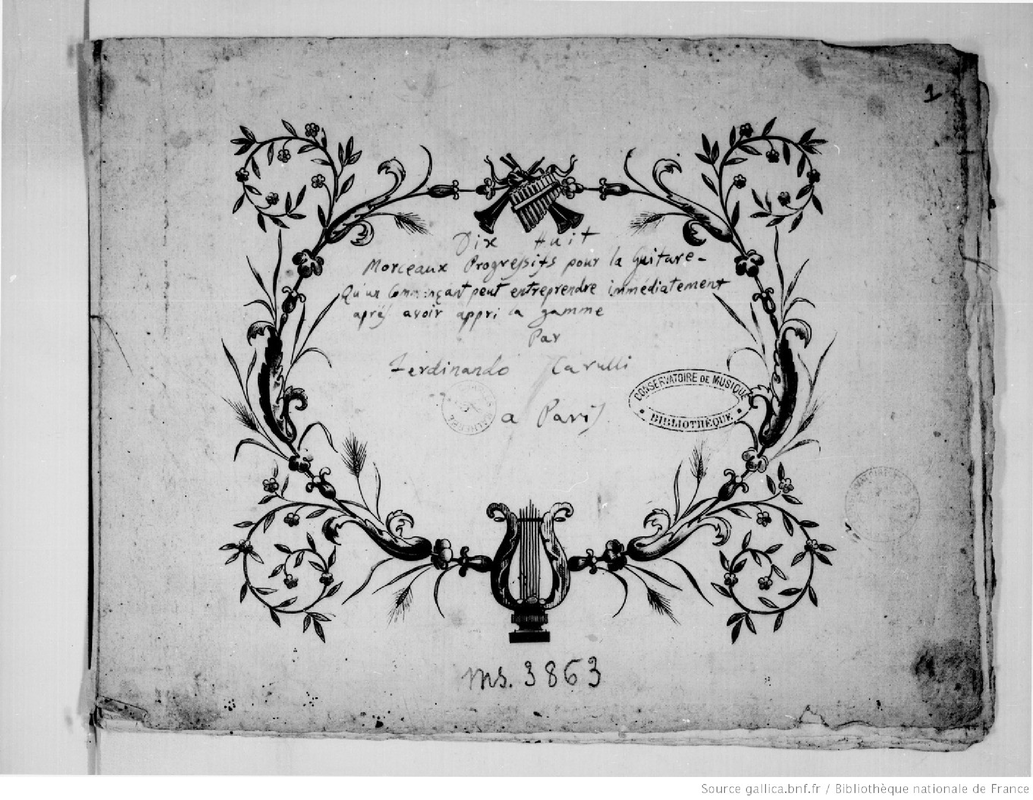 1
Dix Huit
Morceaux Progressifs pour la Guitare -
Qu'un Commançant peut entreprendre immédiatement
apres avoir appri la gamme
Par
Ferdinando Carulli
a Paris
CONSERVATOIRE DE MUSIQUE
BIBLIOTHÈQUE
ms. 3863
Source gallica.bnf.fr / Bibliothèque nationale de France